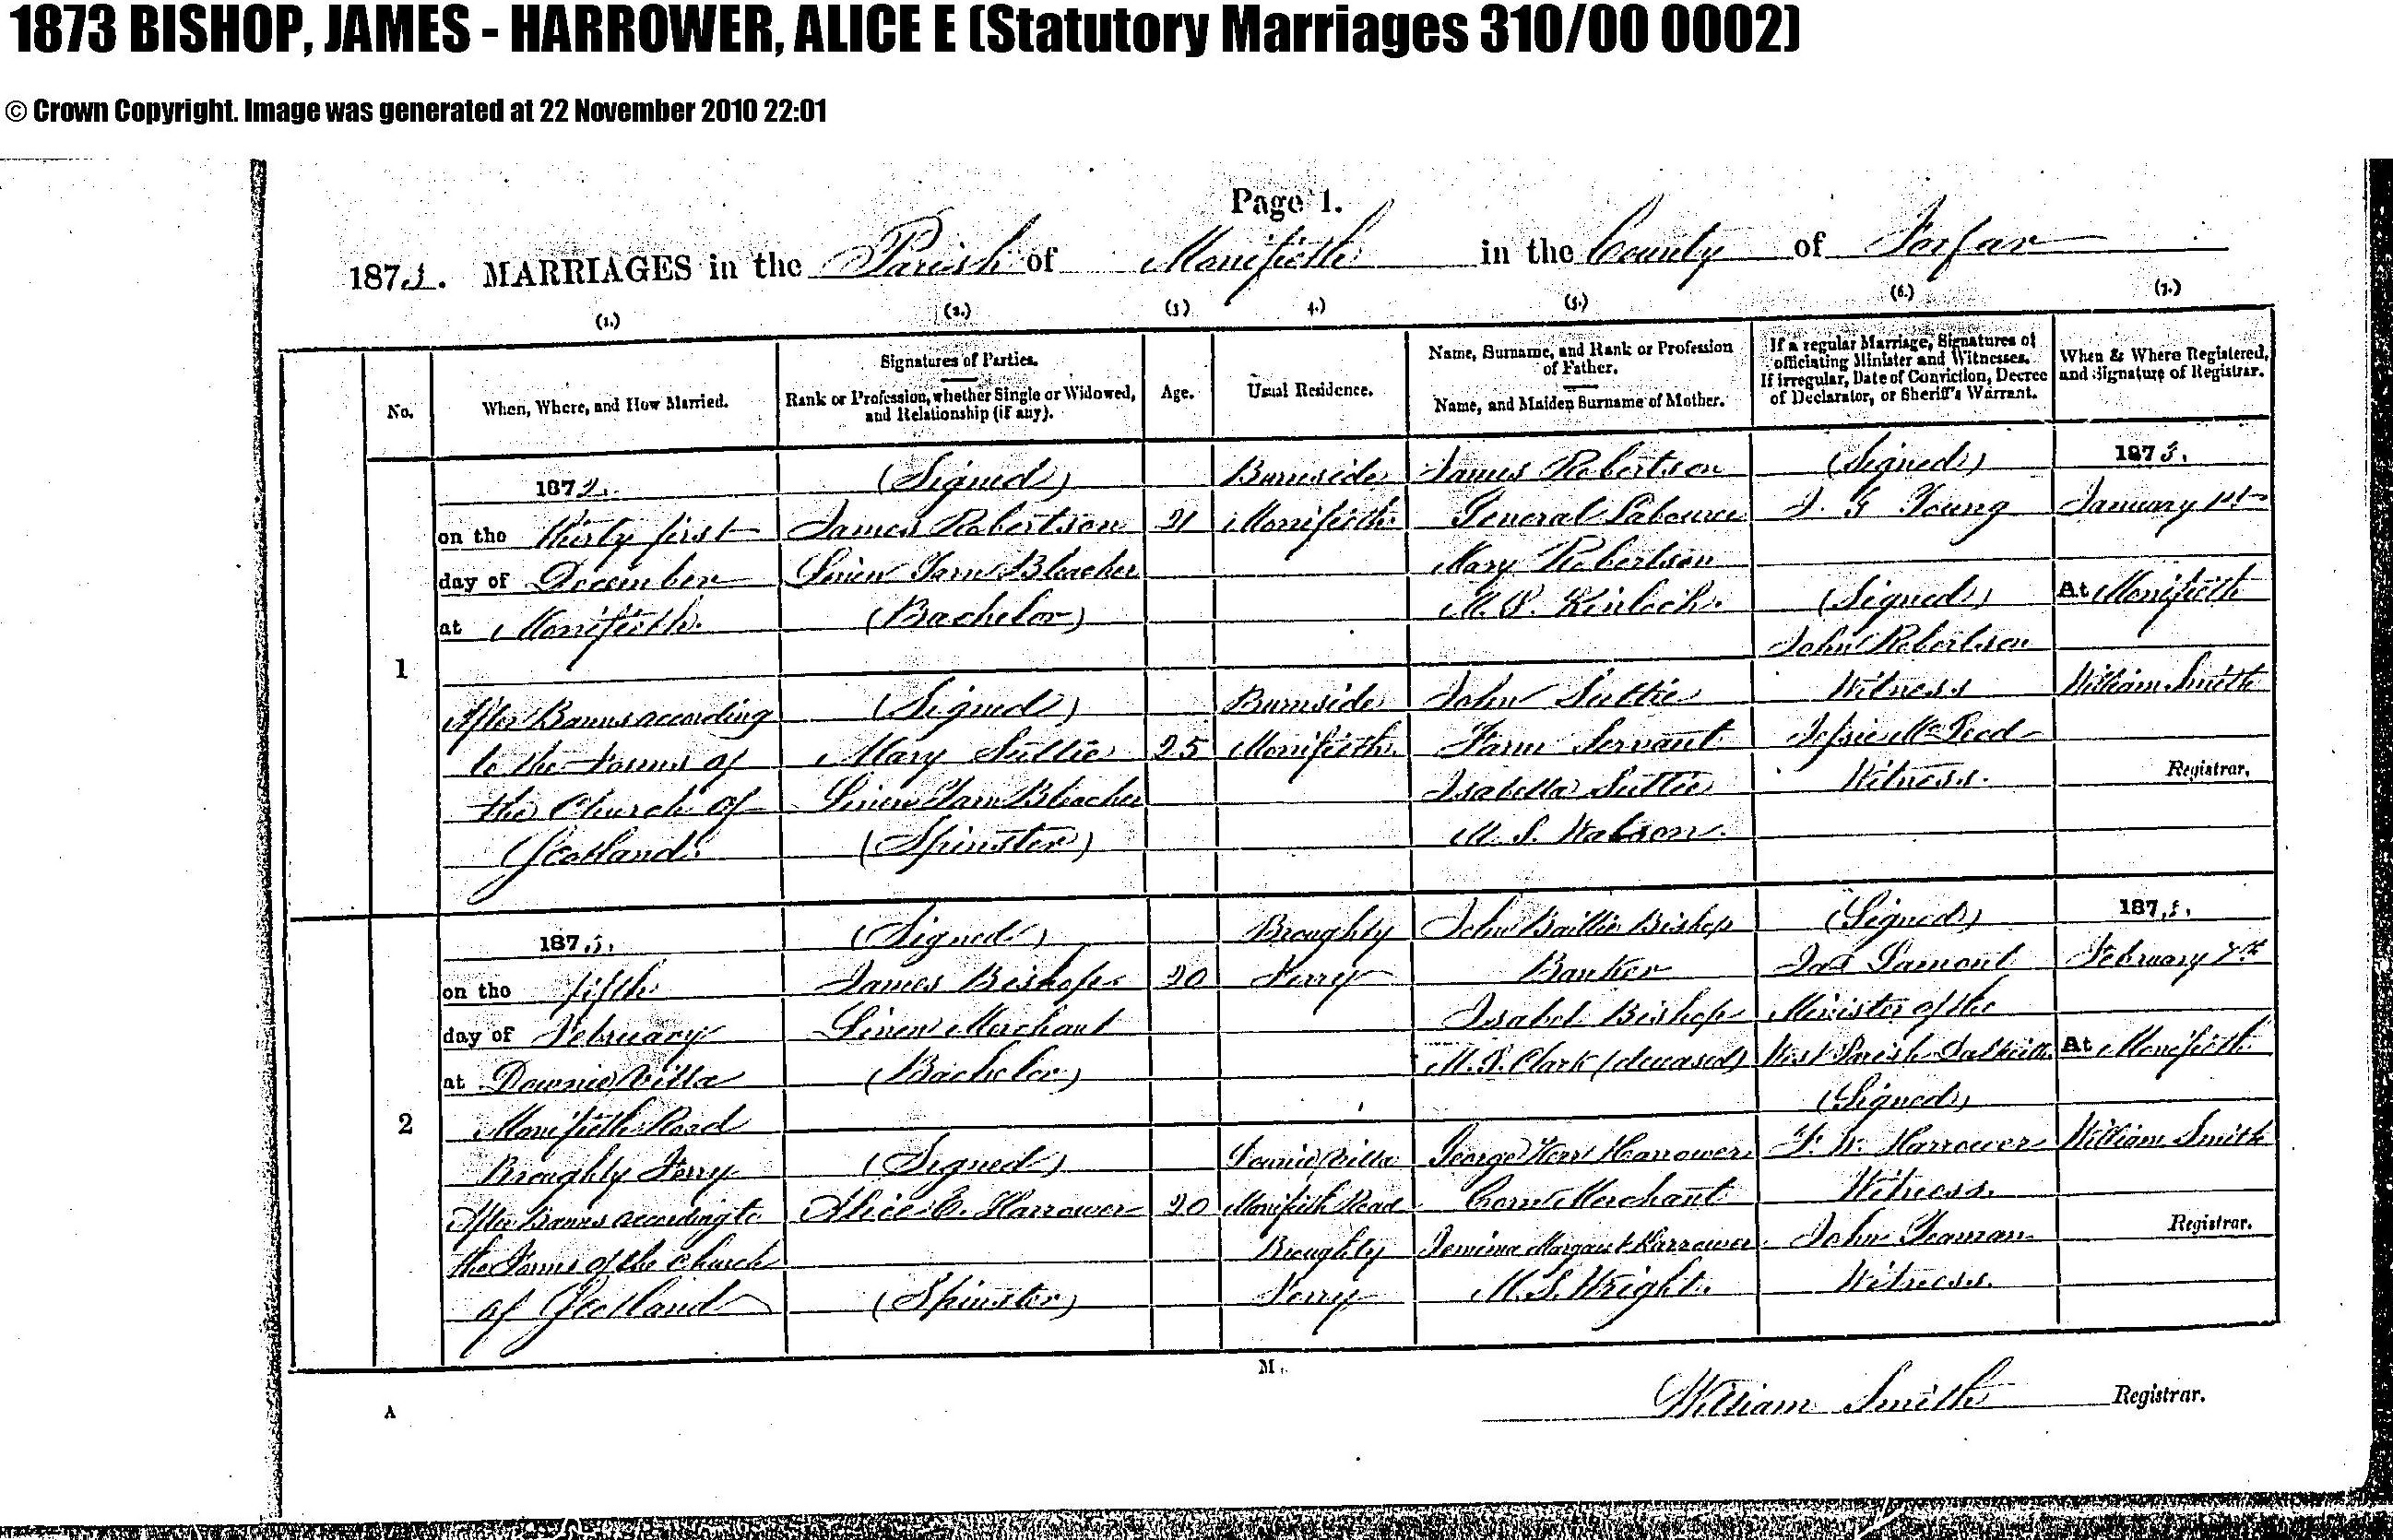 1873 BISHOP, JAMES - HARROWER, ALICE E (Statutory Marriages 310/00 0002)
© Crown Copyright. Image was generated at 22 November 2010 22:01
Page 1.
1873. MARRIAGES in the Parish of Monifieth in the County of Forfar
(1.) (2.) (3) 4.) (5.) (6.) (7.)
No.
When, Where, and How Married.
Signatures of Parties.
Rank or Profession, whether Single or Widowed,
and Relationship (if any).
Age.
Usual Residence.
Name, Surname, and Rank or Profession
of Father.
Name, and Maiden Surname of Mother.
If a regular Marriage, Signatures of
officiating Minister and Witnesses.
If irregular, Date of Conviction, Decree
of Declarator, or Sheriff's Warrant.
When & Where Registered,
and Signature of Registrar.
1
1872.
on the thirty first
day of December
at Monifieth.
After Banns according
to the Forms of
the Church of
Scotland.
(Signed)
James Robertson
Linen Yarn Bleacher
(Bachelor)
(Signed)
Mary Suttie
Linen Yarn Bleacher
(Spinster)
21
25
Burnside
Monifieth.
Burnside
Monifieth.
James Robertson
General Labourer
Mary Robertson
M.S. Kinloch.
John Suttie
Farm Servant
Isabella Suttie
M.S. Watson.
(Signed)
J. G Young
(Signed)
John Robertson
Witness
Jessie
Witness.
1873.
January 1st
At Monifieth
William Smith
Registrar.
2
1873.
on the fifth
day of February
at Downie Villa
Monifieth Road
Broughty Ferry
After Banns according to
the Forms of the Church
of Scotland
(Signed)
James Bishop
Linen Merchant
(Bachelor)
(Signed)
Alice E. Harrower
(Spinster)
20
20
Broughty
Ferry
Downie Villa
Monifieth Road
Broughty
Ferry
John Baillie Bishop
Banker
Isabel Bishop
M.S. Clark (deceased)
George Harrower
Corn Merchant
Jemima Margaret Harrower
M.S. Wright.
(Signed)
Jas Lamont
Minister of the
West Parish Dalkeith
(Signed)
Harrower
Witness.
John Yeaman
Witness.
1873.
February 7th
At Monifieth
William Smith
Registrar.
M.
A
William Smith Registrar.